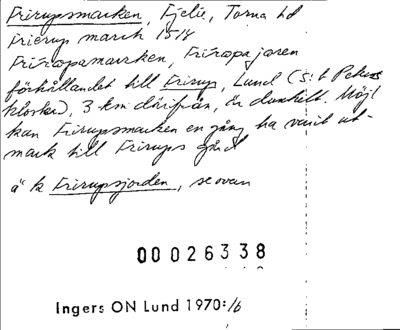 Frirupsmarken, Fjelie, Torna hd
Frierup march 1518
Friropamarken, Friropajoren
förhållandet till Frirup, Lund (S:t Peters
kloster), 3 km därifrån, är dunkelt. Möjl
kan Frirupsmarken en gång ha varit ut-
mark till Frirups gård
ä k Frirupsjorden, se ovan
00026338
Ingers ON Lund 1970:/b